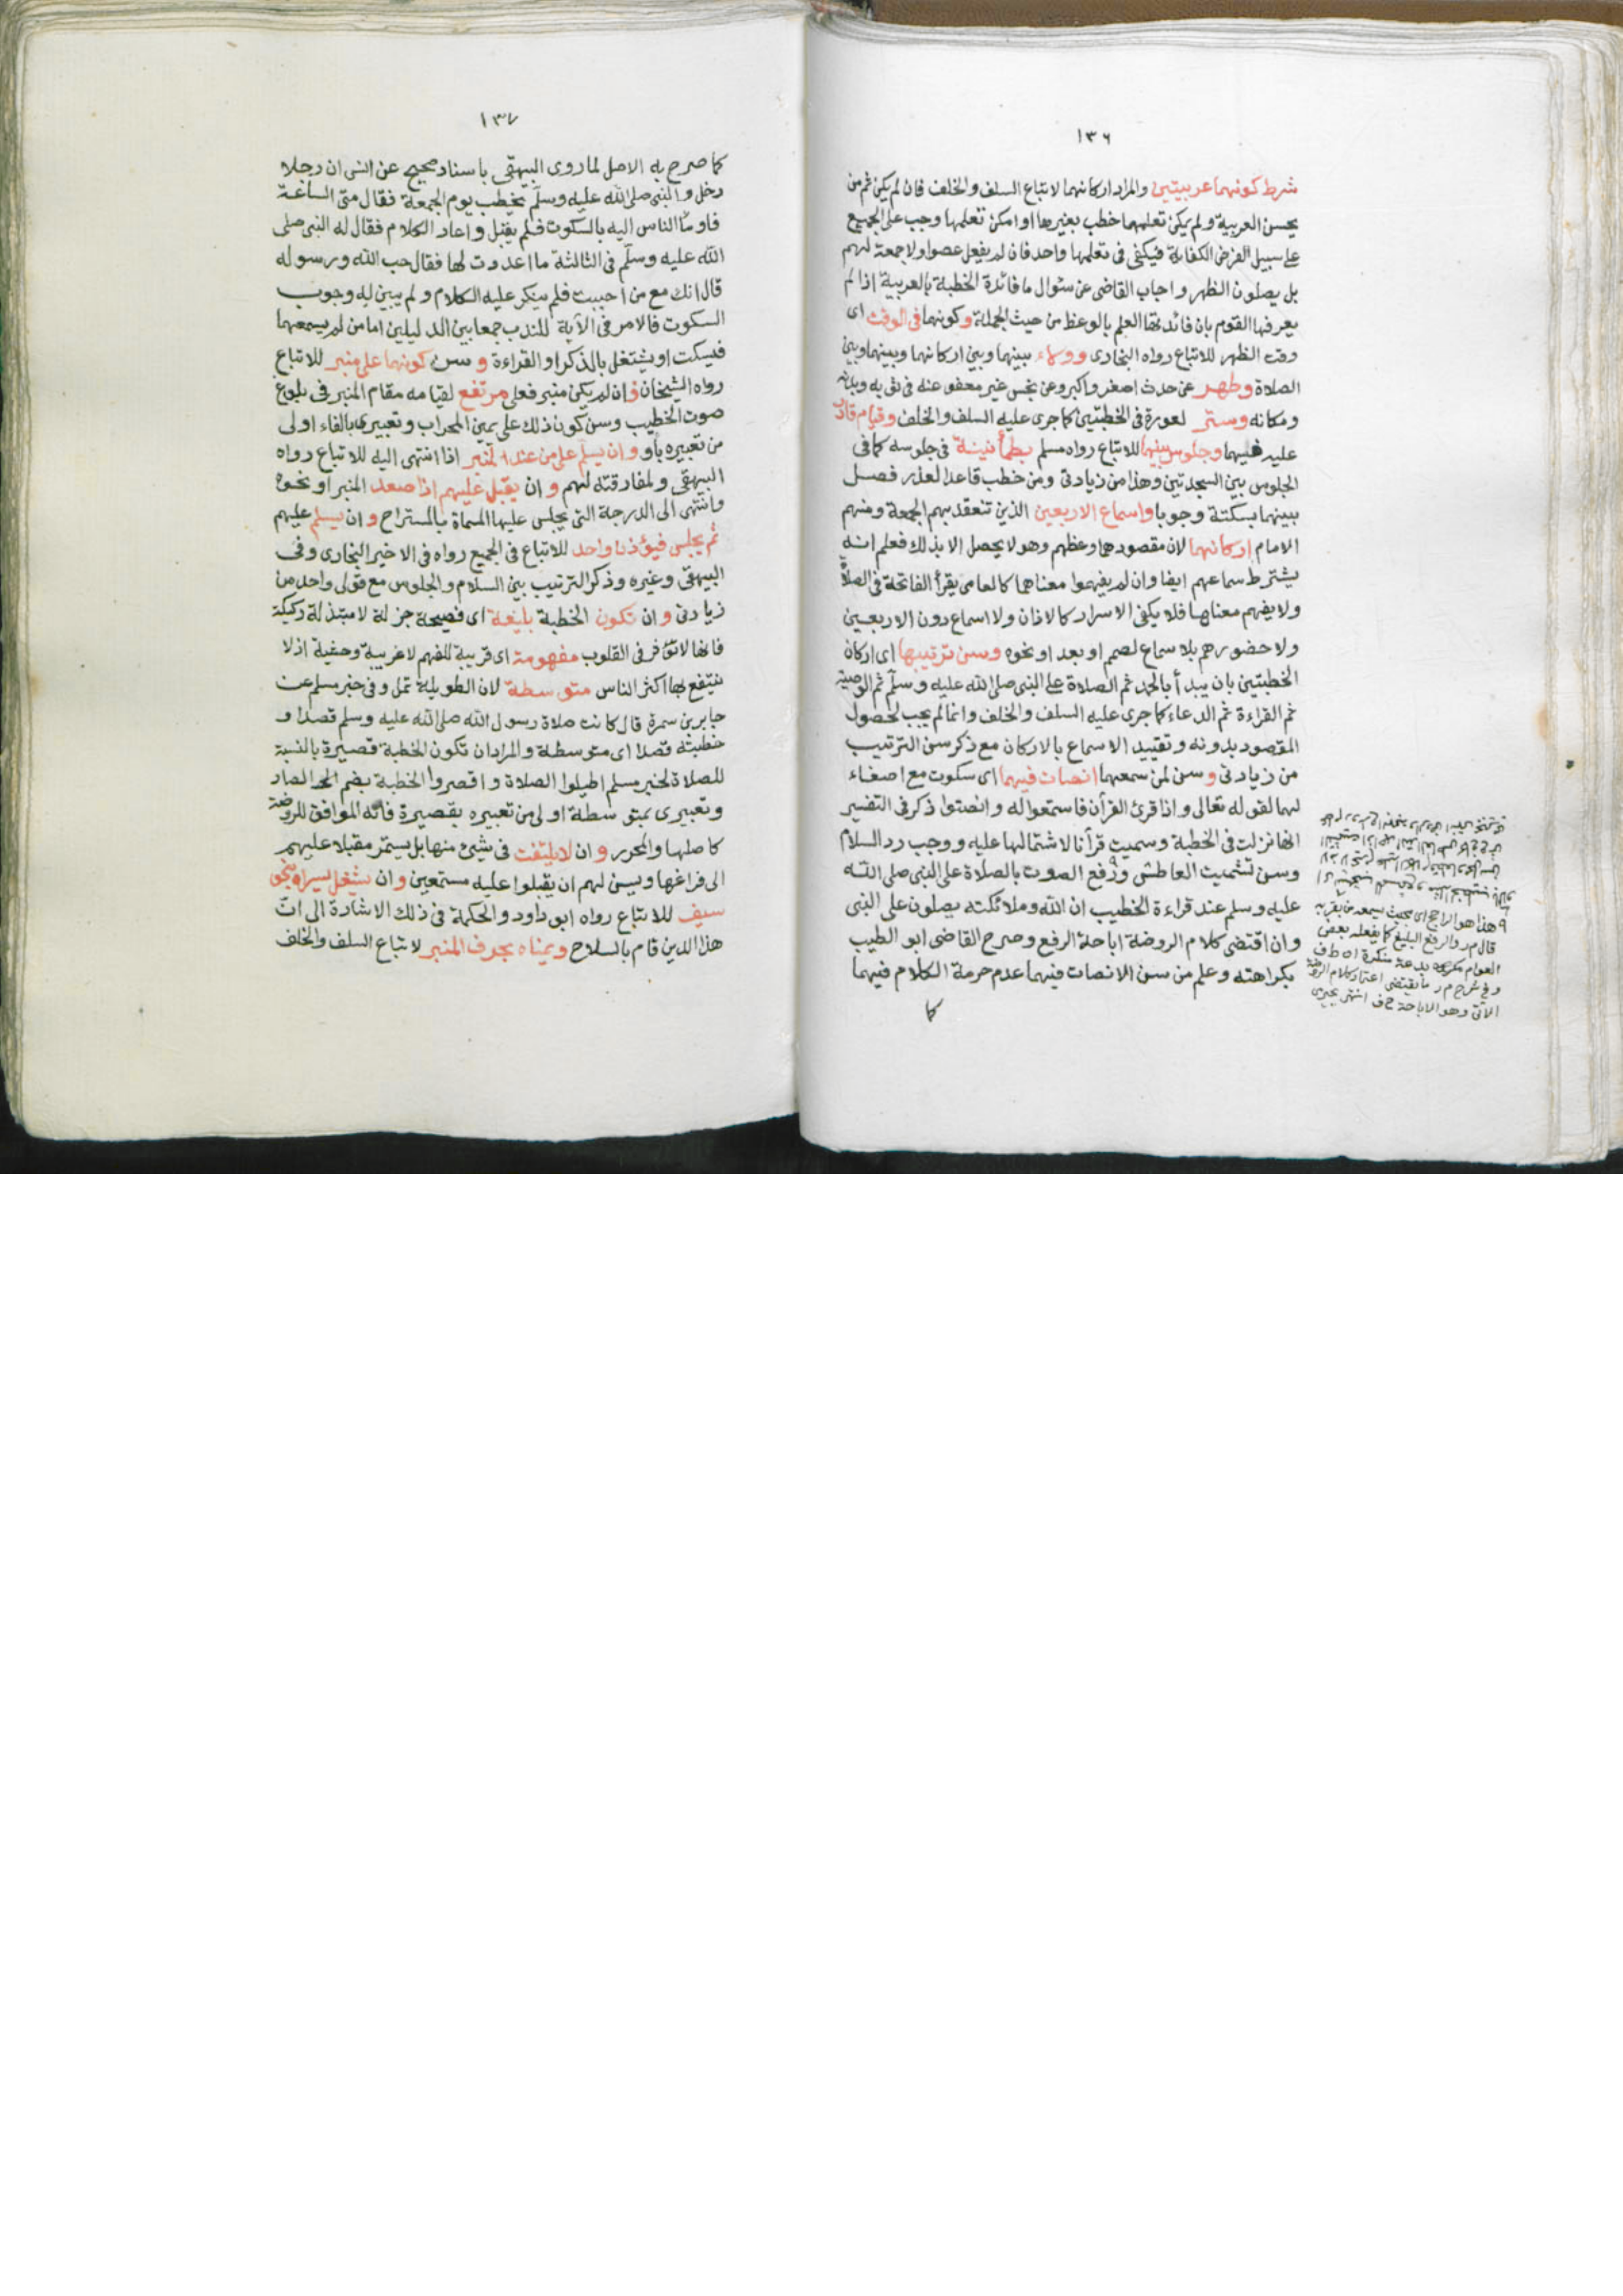 ١٣٦
شرط كونهما عربيتين والمراد اركانهما لاتباع السلف والخلف فان لم يكن ثم من
يحسن العربية ولم يكن تعلمها خطب بغيرها او امكن تعلمها وجب على الجميع
على سبيل الفرض الكفاية فيكفى فى تعلمها واحد فان لم يفعل عصوا ولا جمعة لهم
بل يصلون الظهر واجاب القاضى عن سئوال ما فائدة الخطبة بالعربية اذا لم
يعرفها القوم بان فائدتها العلم بالوعظ من حيث الجملة وكونهما فى الوقت اى
وقت الظهر للاتباع رواه البخارى وولاء بينهما وبين اركانهما وبينهما وبين
الصلاة وطهر عن حدث اصغر واكبر وعن نجس غير معفو عنه فى ثوبه وبدنه
ومكانه وستر لعورة فى الخطبتين كما جرى عليه السلف والخلف وقيام قادر
عليه فيهما وجلوس بينهما للاتباع رواه مسلم بطمأنينة فى جلوسه كما فى
الجلوس بين السجدتين وهذا من زيادتى ومن خطب قاعدا لعذر فصل
بينهما بسكتة وجوبا واسماع الاربعين الذين تنعقد بهم الجمعة ومنهم
الامام اركانهما لان مقصودهما وعظهم وهو لا يحصل الا بذلك فعلم انه
يشترط سماعهم ايضا وان لم يفهموا معناهما كالعامى يقرأ الفاتحة فى الصلاة
ولا يفهم معناها فلا يكفى الاسرار كالاذان ولا اسماع دون الاربعين
ولا حضورهم بلا سماع لصمم او بعد او نحوه وسن ترتيبها اى اركان
الخطبتين بان يبدأ بالحمد ثم الصلاة على النبى صلى الله عليه وسلم ثم الوصية
ثم القراءة ثم الدعاء كما جرى عليه السلف والخلف وانما لم يجب لحصول
المقصود بدونه وتقييد الاسماع بالاركان مع ذكر سن الترتيب
من زيادتى وسن لمن سمعهما انصات فيهما اى سكوت مع اصغاء
لهما لقوله تعالى واذا قرئ القرآن فاستمعوا له وانصتوا ذكر فى التفسير
انها نزلت فى الخطبة وسميت قرآنا لاشتمالها عليه ووجب رد السلام
وسن تشميت العاطش ورفع الصوت بالصلاة على النبى صلى الله
عليه وسلم عند قراءة الخطيب ان الله وملائكته يصلون على النبى
وان اقتضى كلام الروضة اباحة الرفع وصرح القاضى ابو الطيب
بكراهته وعلم من سن الانصات فيهما عدم حرمة الكلام فيهما
كما
٩ هذا هو الراجح اى بحيث يسمعه من بقربه
قال م ر والرفع البليغ كما يفعله بعض
العوام مكروه بدعة منكرة اه ط ف
وفى شرح م ر ما يقتضى اعتماد كلام الروضة
الآتى وهو الاباحة ح ف انتهى بجيرمى
١٣٧
كما صرح به الاصل لما روى البيهقى باسناد صحيح عن انس ان رجلا
دخل والنبى صلى الله عليه وسلم يخطب يوم الجمعة فقال متى الساعة
فاومأ الناس اليه بالسكوت فلم يقبل واعاد الكلام فقال له النبى صلى
الله عليه وسلم فى الثالثة ما اعددت لها فقال حب الله ورسوله
قال انك مع من احببت فلم ينكر عليه الكلام ولم يبين له وجوب
السكوت فالامر فى الآية للندب جمعا بين الدليلين اما من لم يسمعهما
فيسكت او يشتغل بالذكر او القراءة و سن كونهما على منبر للاتباع
رواه الشيخان فان لم يكن منبر فعلى مرتفع لقيامه مقام المنبر فى بلوغ
صوت الخطيب وسن كون ذلك على يمين المحراب وتعبيرى بالفاء اولى
من تعبيره باو وان يسلم على من عند المنبر اذا انتهى اليه للاتباع رواه
البيهقى ولمفارقته لهم و ان يقبل عليهم اذا صعد المنبر او نحوه
وانتهى الى الدرجة التى يجلس عليها المسماة بالمستراح و ان يسلم عليهم
ثم يجلس فيؤذن واحد للاتباع فى الجميع رواه فى الاخير البخارى وفى
البيهقى وغيره وذكر الترتيب بين السلام والجلوس مع قولى واحد من
زيادتى و ان تكون الخطبة بليغة اى فصيحة جزلة لا مبتذلة ركيكة
فانها لا تؤثر فى القلوب مفهومة اى قريبة للفهم لا غريبة وحشية اذ لا
ينتفع بها اكثر الناس متوسطة لان الطويلة تمل وفى خبر مسلم عن
جابر بن سمرة قال كانت صلاة رسول الله صلى الله عليه وسلم قصدا و
خطبته قصدا اى متوسطة والمراد ان تكون الخطبة قصيرة بالنسبة
للصلاة لخبر مسلم اطيلوا الصلاة واقصروا الخطبة بضم الصاد
وتعبيرى بمتوسطة اولى من تعبيره بقصيرة فانه الموافق للروضة
كاصلها والمحرر و ان لا يلتفت فى شيئ منها بل يستمر مقبلا عليهم
الى فراغها ويسن لهم ان يقبلوا عليه مستمعين و ان يشغل يسراه بنحو
سيف للاتباع رواه ابو داود والحكمة فى ذلك الاشارة الى ان
هذا الدين قام بالسلاح ويمناه بحرف المنبر لاتباع السلف والخلف